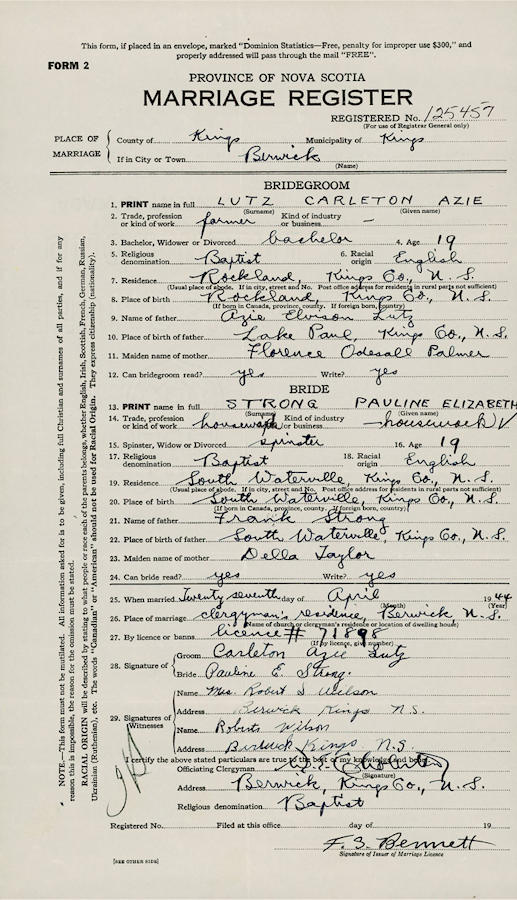 This form, if placed in an envelope, marked "Dominion Statistics—Free, penalty for improper use $300," and
properly addressed will pass through the mail "FREE".
FORM 2
PROVINCE OF NOVA SCOTIA
MARRIAGE REGISTER
REGISTERED No. 125457
(For use of Registrar General only)
PLACE OF MARRIAGE
County of Kings Municipality of Kings
If in City or Town Berwick
(Name)
BRIDEGROOM
1. PRINT name in full LUTZ CARLETON AZIE
(Surname) (Given name)
2. Trade, profession or kind of work farmer Kind of industry or business —
3. Bachelor, Widower or Divorced bachelor 4. Age 19
5. Religious denomination Baptist 6. Racial origin English
7. Residence Rockland, Kings Co., N. S.
(Usual place of abode. If in city, street and No. Post office address for residents in rural parts not sufficient)
8. Place of birth Rockland, Kings Co., N. S.
(If born in Canada, province, county. If foreign born, country)
9. Name of father Azie Elvison Lutz
10. Place of birth of father Lake Paul, Kings Co., N. S.
11. Maiden name of mother Florence Odesall Palmer
12. Can bridegroom read? yes Write? yes
BRIDE
13. PRINT name in full STRONG PAULINE ELIZABETH
(Surname) (Given name)
14. Trade, profession or kind of work housework Kind of industry or business housework
15. Spinster, Widow or Divorced spinster 16. Age 19
17. Religious denomination Baptist 18. Racial origin English
19. Residence South Waterville, Kings Co., N. S.
(Usual place of abode. If in city, street and No. Post office address for residents in rural parts not sufficient)
20. Place of birth South Waterville, Kings Co., N. S.
(If born in Canada, province, county. If foreign born, country)
21. Name of father Frank Strong
22. Place of birth of father South Waterville, Kings Co., N. S.
23. Maiden name of mother Della Taylor
24. Can bride read? yes Write? yes
25. When married Twenty seventh day of April 1944
(Month) (Year)
26. Place of marriage clergyman's residence, Berwick N. S.
(Name of church or clergyman's residence or location of dwelling house)
27. By licence or banns licence # 71898
(If by licence, give number)
28. Signature of
Groom Carleton Azie Lutz
Bride Pauline E. Strong
29. Signatures of Witnesses
Name Mrs. Robert S Wilson
Address Berwick Kings N.S.
Name Roberts Wilson
Address Berwick Kings N.S.
I certify the above stated particulars are true to the best of my knowledge and belief.
Officiating Clergyman
(Signature)
Address Berwick, Kings Co., N. S.
Religious denomination Baptist
Registered No. Filed at this office day of 19
F. S. Bennett
Signature of Issuer of Marriage Licence
[SEE OTHER SIDE]
NOTE.—This form must not be mutilated. All information asked for is to be given, including full Christian and surnames of all parties, and if for any
reason this is impossible, the reason for the omission must be stated.
RACIAL ORIGIN will be described by stating to what people or race each of the parents belongs, whether English, Irish, Scottish, French, German, Russian,
Ukrainian (Ruthenian), etc. The words "Canadian" or "American" should not be used for Racial Origin. They express citizenship (nationality).